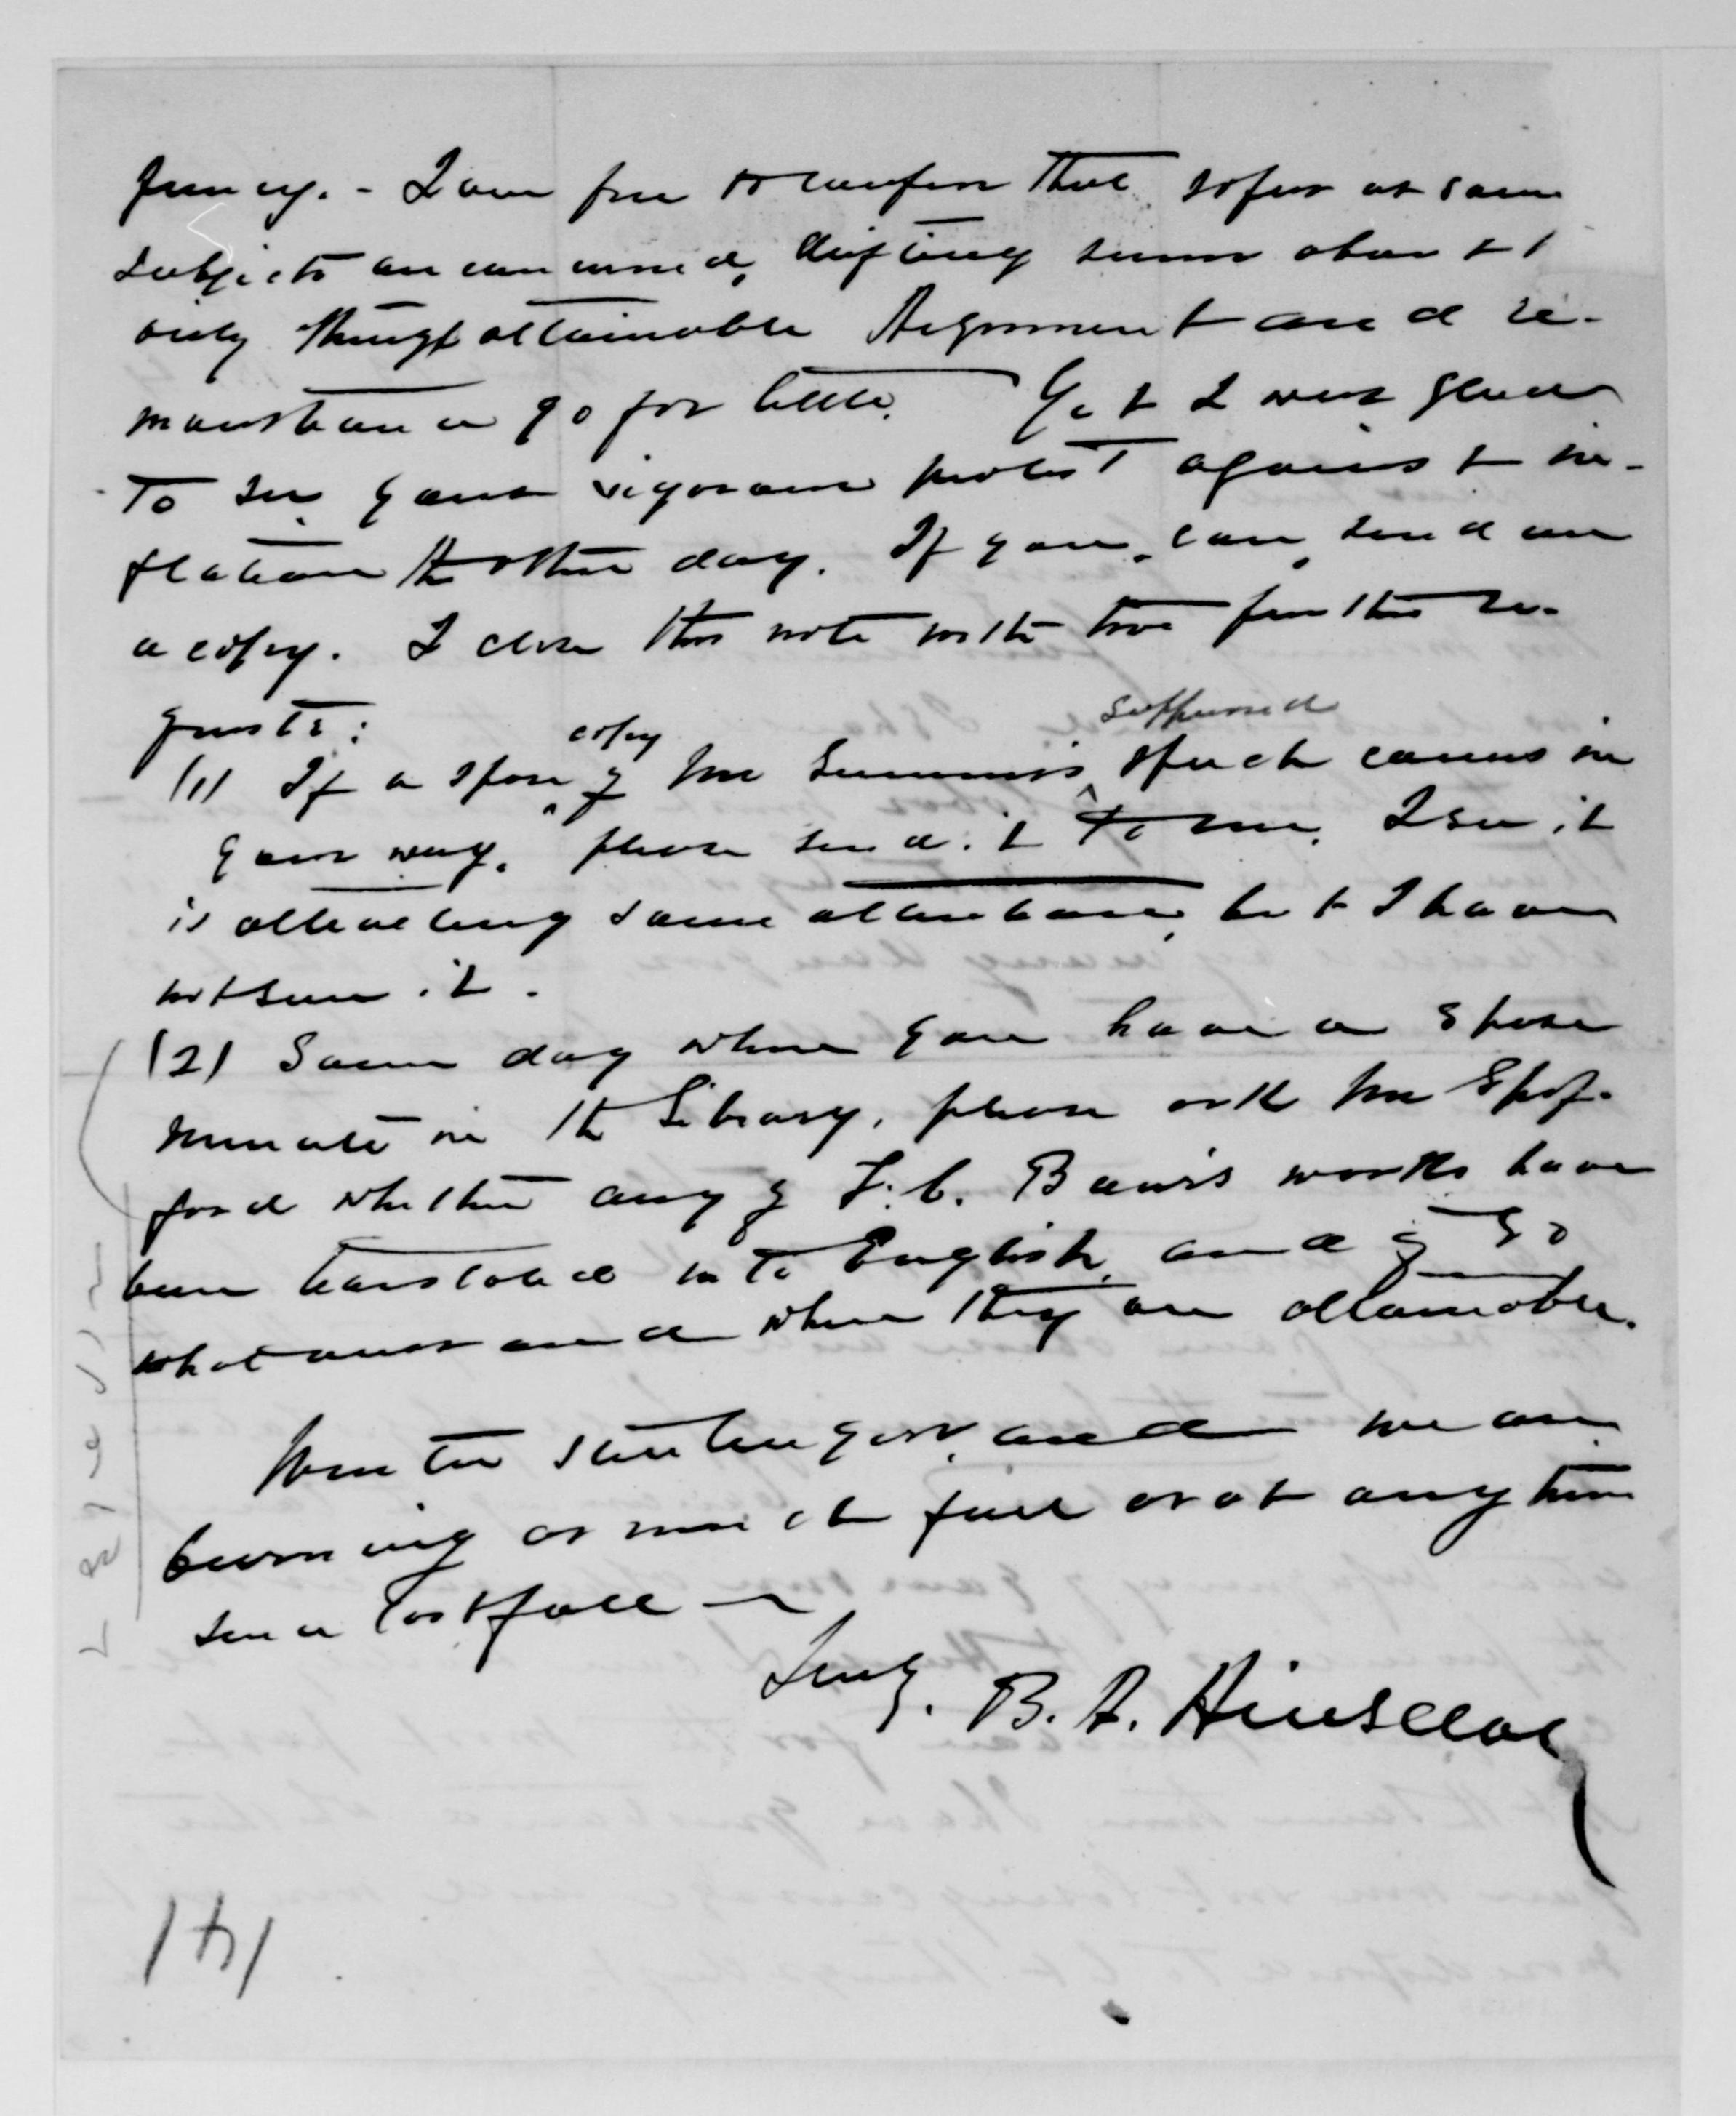 quency. - I am free to confess that so far as some
subjects are concerned, drifting seems about
only thing attainable Argument and re-
monstrance go for little. Yet I was glad
to see your vigorous protest against in-
flation the other day. If you can, send me
a copy. I close this note with two further re-
quests:
(1) If a spare copy of Mr Sumner's suppressed speech comes in
your way, please send it to me. I see it
is attracting some attention, but I have
not seen it.
(2) Some day when you have a spare
minute in the Library, please ask Mr Spof-
ford whether any of F. C. Baur's works have
been translated into English, and if so
what ones and where they are attainable.
Winter still lingers, and we are
burning as much fuel as at any time
since last fall —
Truly. B. A. Hinsdale